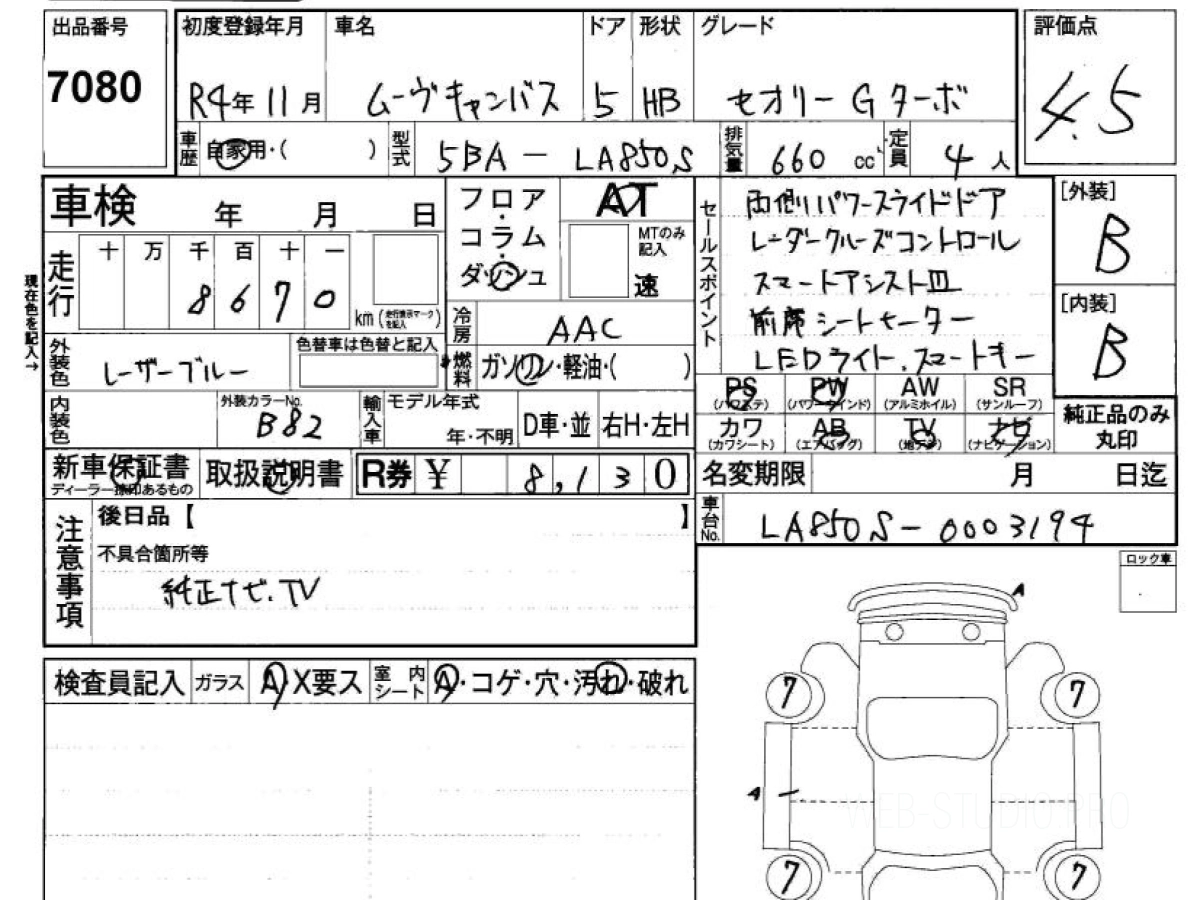 出品番号
7080
初度登録年月
R4年11月
車名
ムーヴキャンバス
ドア
5
形状
HB
グレード
セオリー Gターボ
評価点
4.5
車歴
自家用・( )
型式
5BA - LA850S
排気量
660 cc
定員
4人
車検 年 月 日
走行
十 万 千 百 十 一
8 6 7 0
km (走行表示マークを記入)
現在色を記入→
フロア・コラム・ダッシュ
AT
MTのみ記入
速
セールスポイント
両側パワースライドドア
レーダークルーズコントロール
スマートアシストⅢ
前席シートヒーター
LEDライト.スマートキー
[外装]
B
[内装]
B
冷房
AAC
外装色
レーザーブルー
色替車は色替と記入
*燃料
ガソリン・軽油・( )
PS
(パワステ)
PW
(パワーウインド)
AW
(アルミホイル)
SR
(サンルーフ)
カワ
(カワシート)
AB
(エアバッグ)
TV
(地デジ)
ナビ
(ナビゲーション)
純正品のみ丸印
内装色
外装カラーNo.
B82
輸入車
モデル年式
年・不明
D車・並
右H・左H
新車保証書
ディーラー捺印あるもの
取扱説明書
R券 ¥ 8,130
名変期限 月 日迄
車台No.
LA850S-0003194
注意事項
後日品【 】
不具合箇所等
純正ナビ.TV
ロック車
検査員記入
ガラス
A・X要ス
室内シート
A・コゲ・穴・汚れ・破れ
A
7
7
A
7
7
WEB-STUDIO.PRO